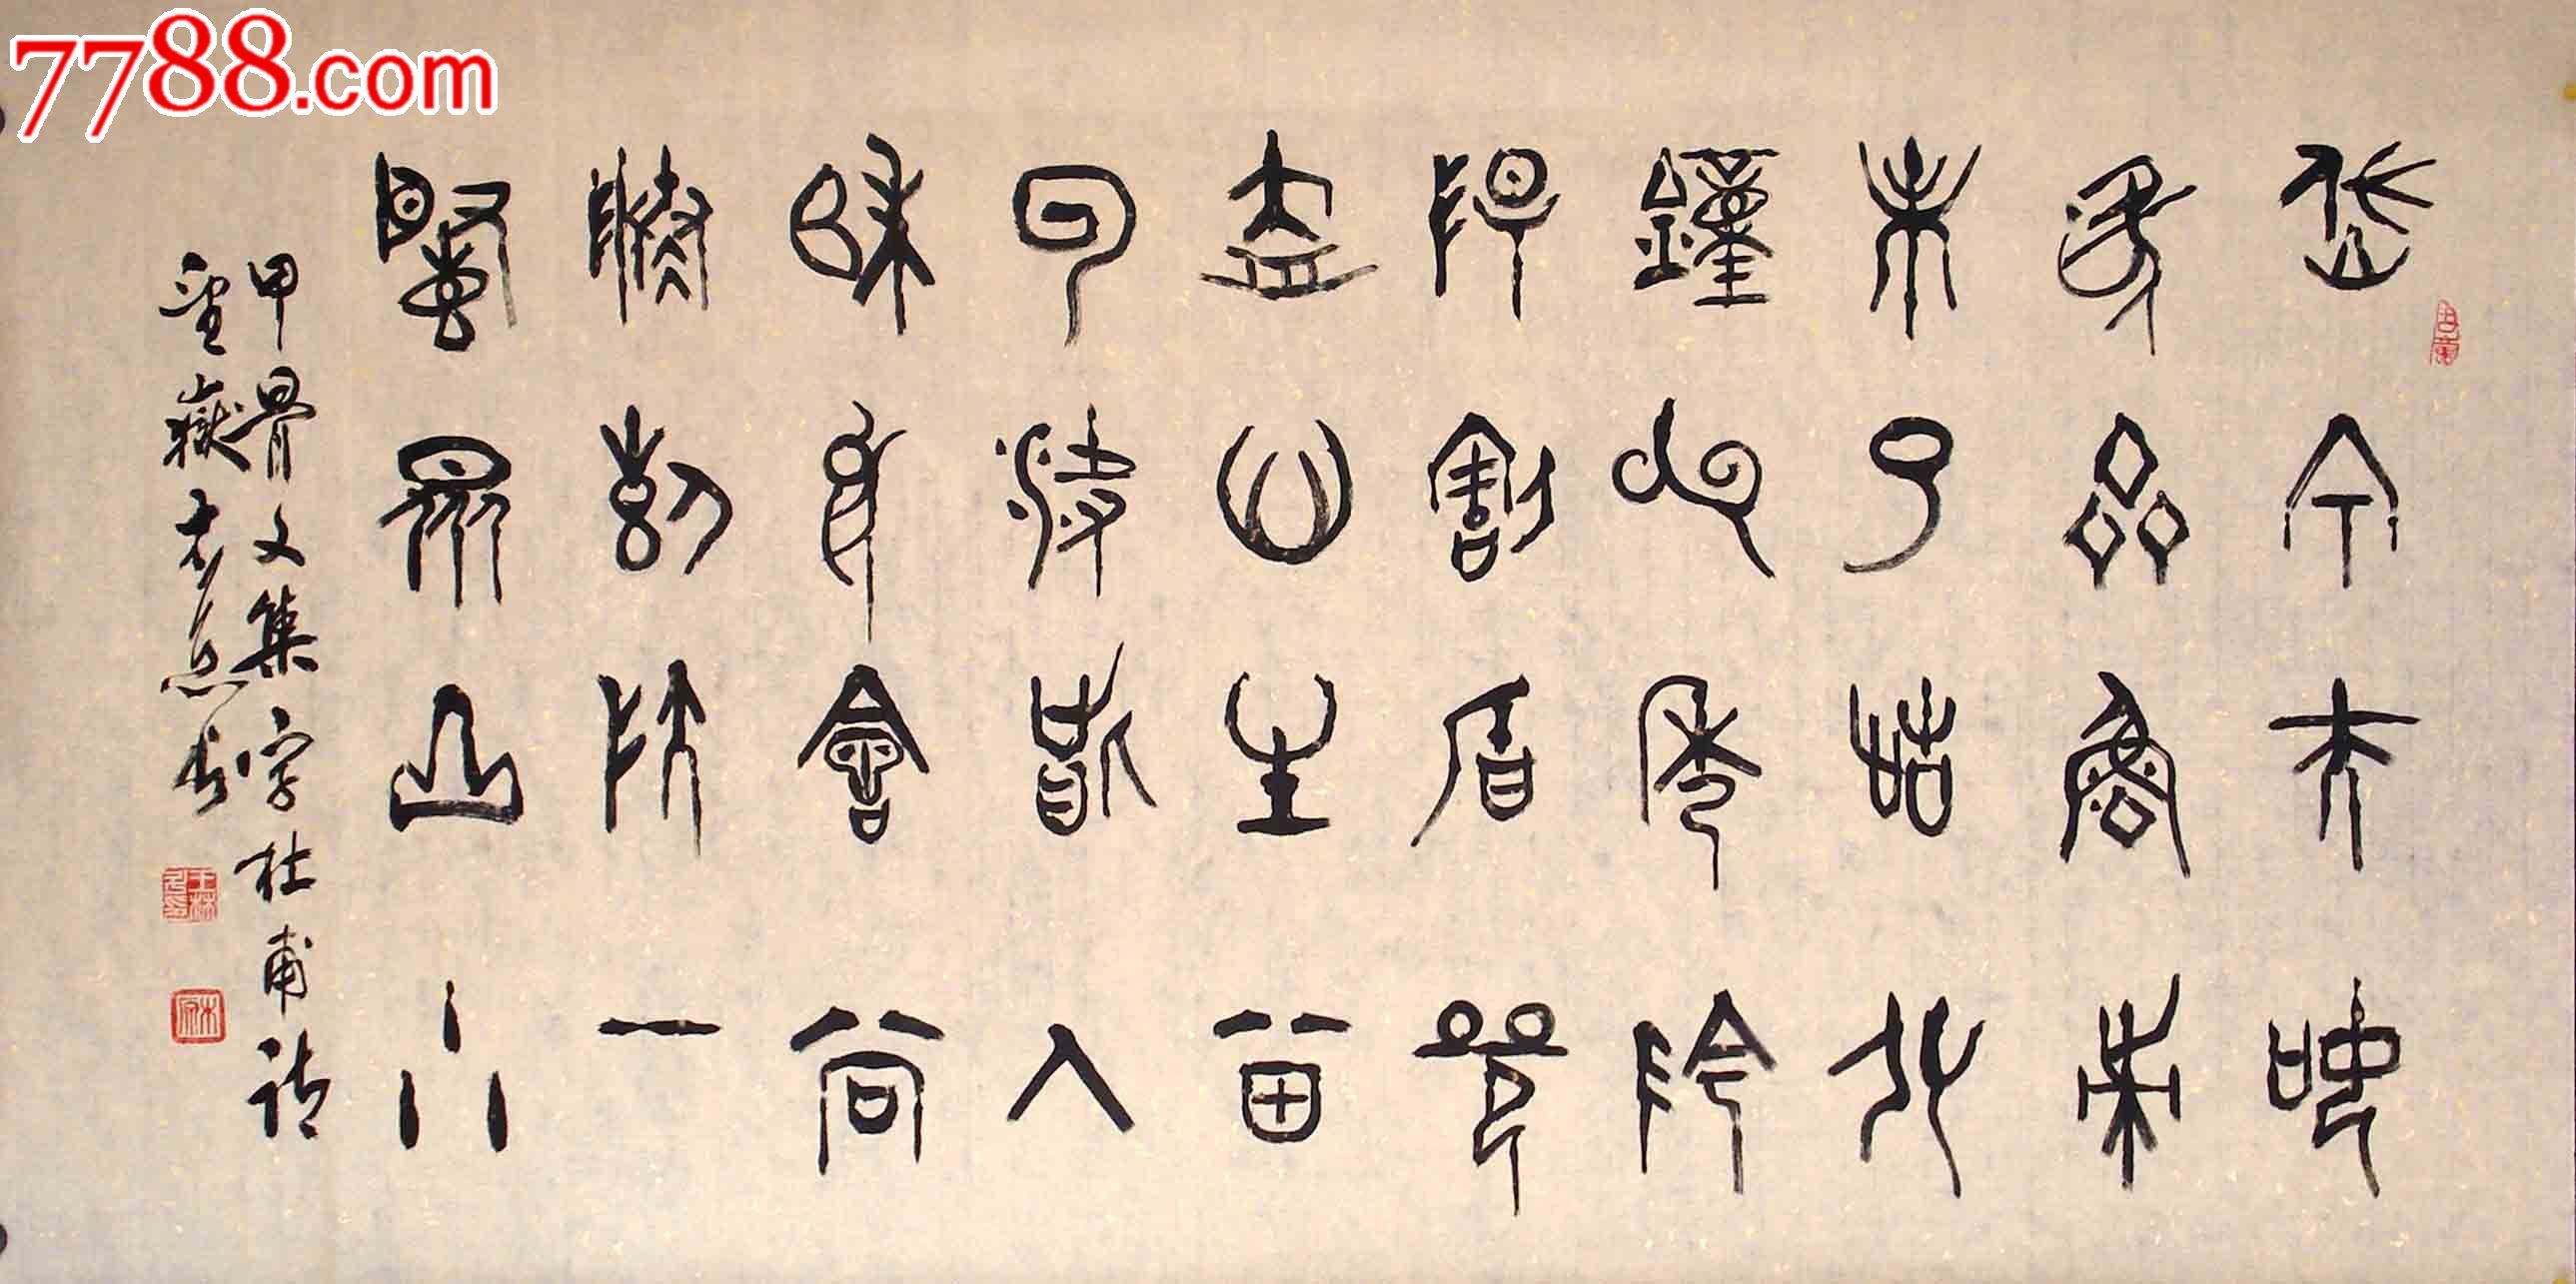 7788.com
岱宗夫如
何齊魯青
未了造化
鐘神秀陰
陽割昏曉
盪胸生曾
雲決眥入
歸鳥會當
凌絕頂一
覽眾山小
甲骨文集字杜甫詩
望嶽